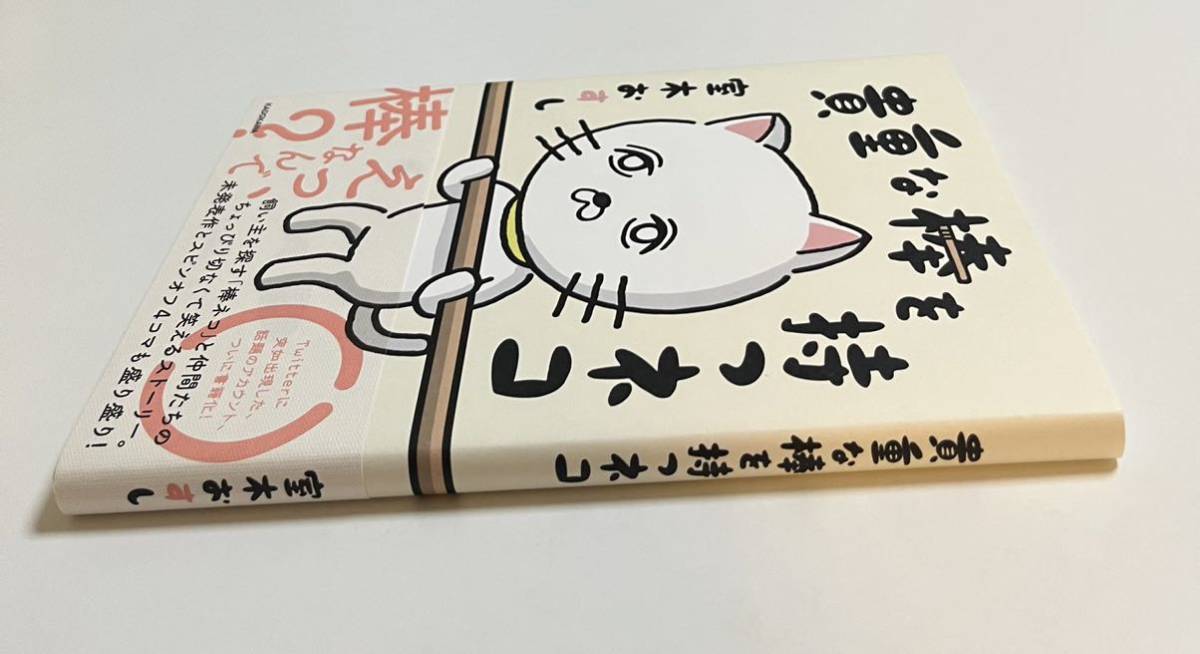 貴重な棒を持つネコ
室木おすし
えっ、
なんで、
棒?
飼い主を探す「棒ネコ」と仲間たちの
ちょっぴり切なくて笑えるストーリー。
未発表作とスピンオフ4コマも盛り盛り!
Twitterに
突如出現した、
話題のアカウント、
ついに書籍化!
KADOKAWA
貴重な棒を持つネコ
室木おすし